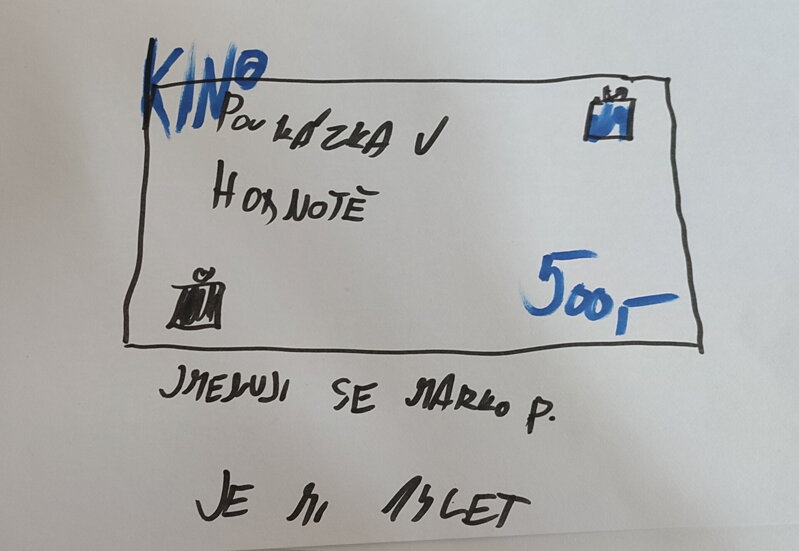 KINO
POUKÁZKA V
HODNOTĚ
500,-
JMENUJI SE MARKO P.
JE MI LET